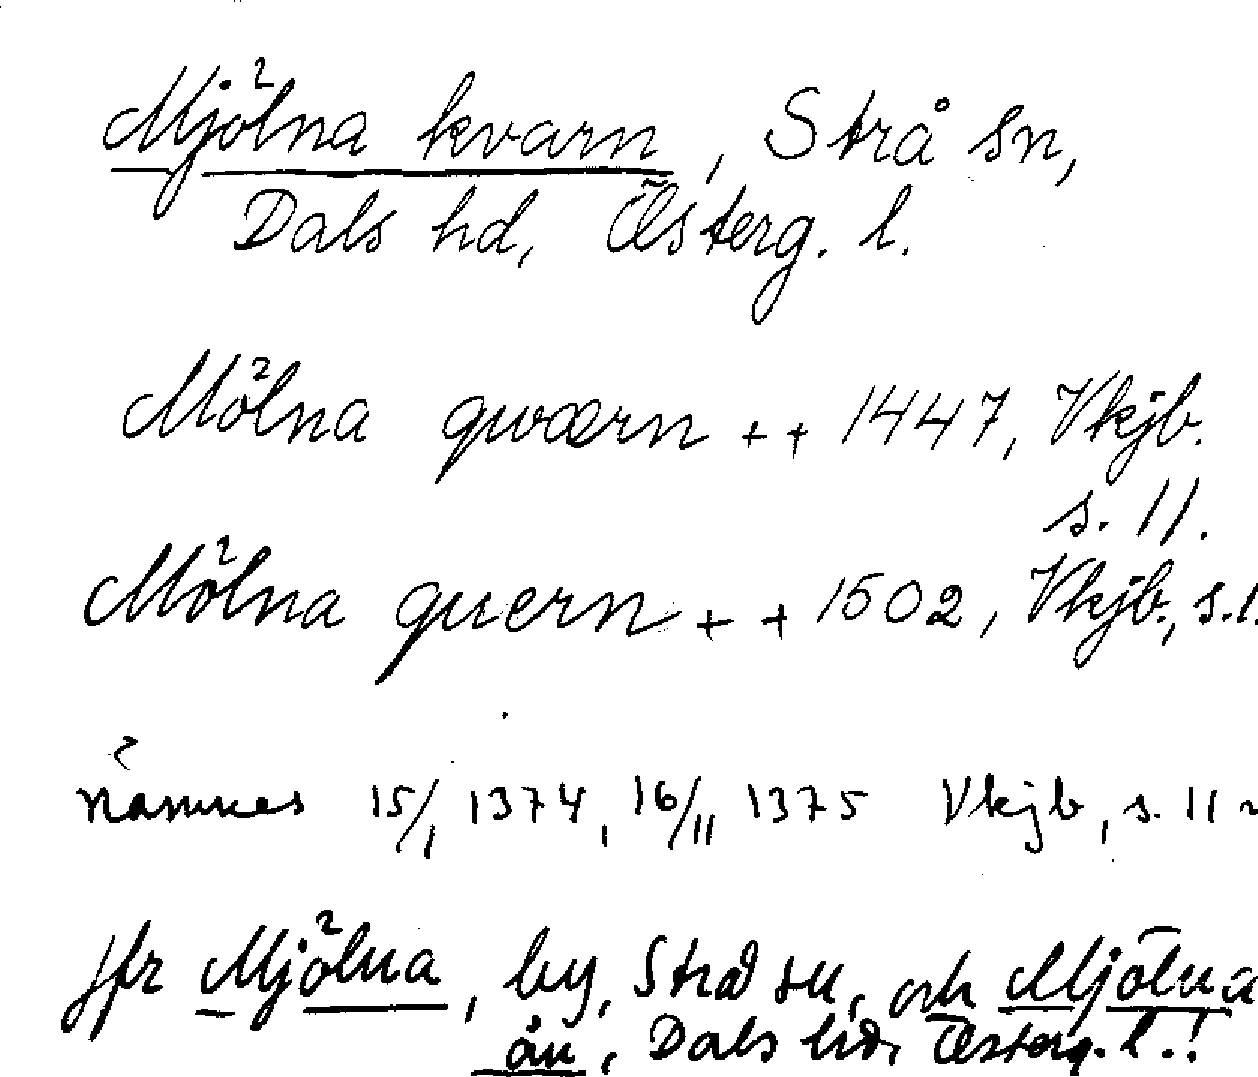 Mjölna kvarn, Strå sn,
Dals hd, Österg. l.
Mölna qwærn ++ 1447, Vkjb.
s. 11.
Mölna quern ++ 1502, Vkjb., s. 1
nämnes 15/1 1374, 16/11 1375 Vkjb, s. 11
jfr Mjölna, by, Strå sn, och Mjölna
ån, Dals hd, Österg. l.!